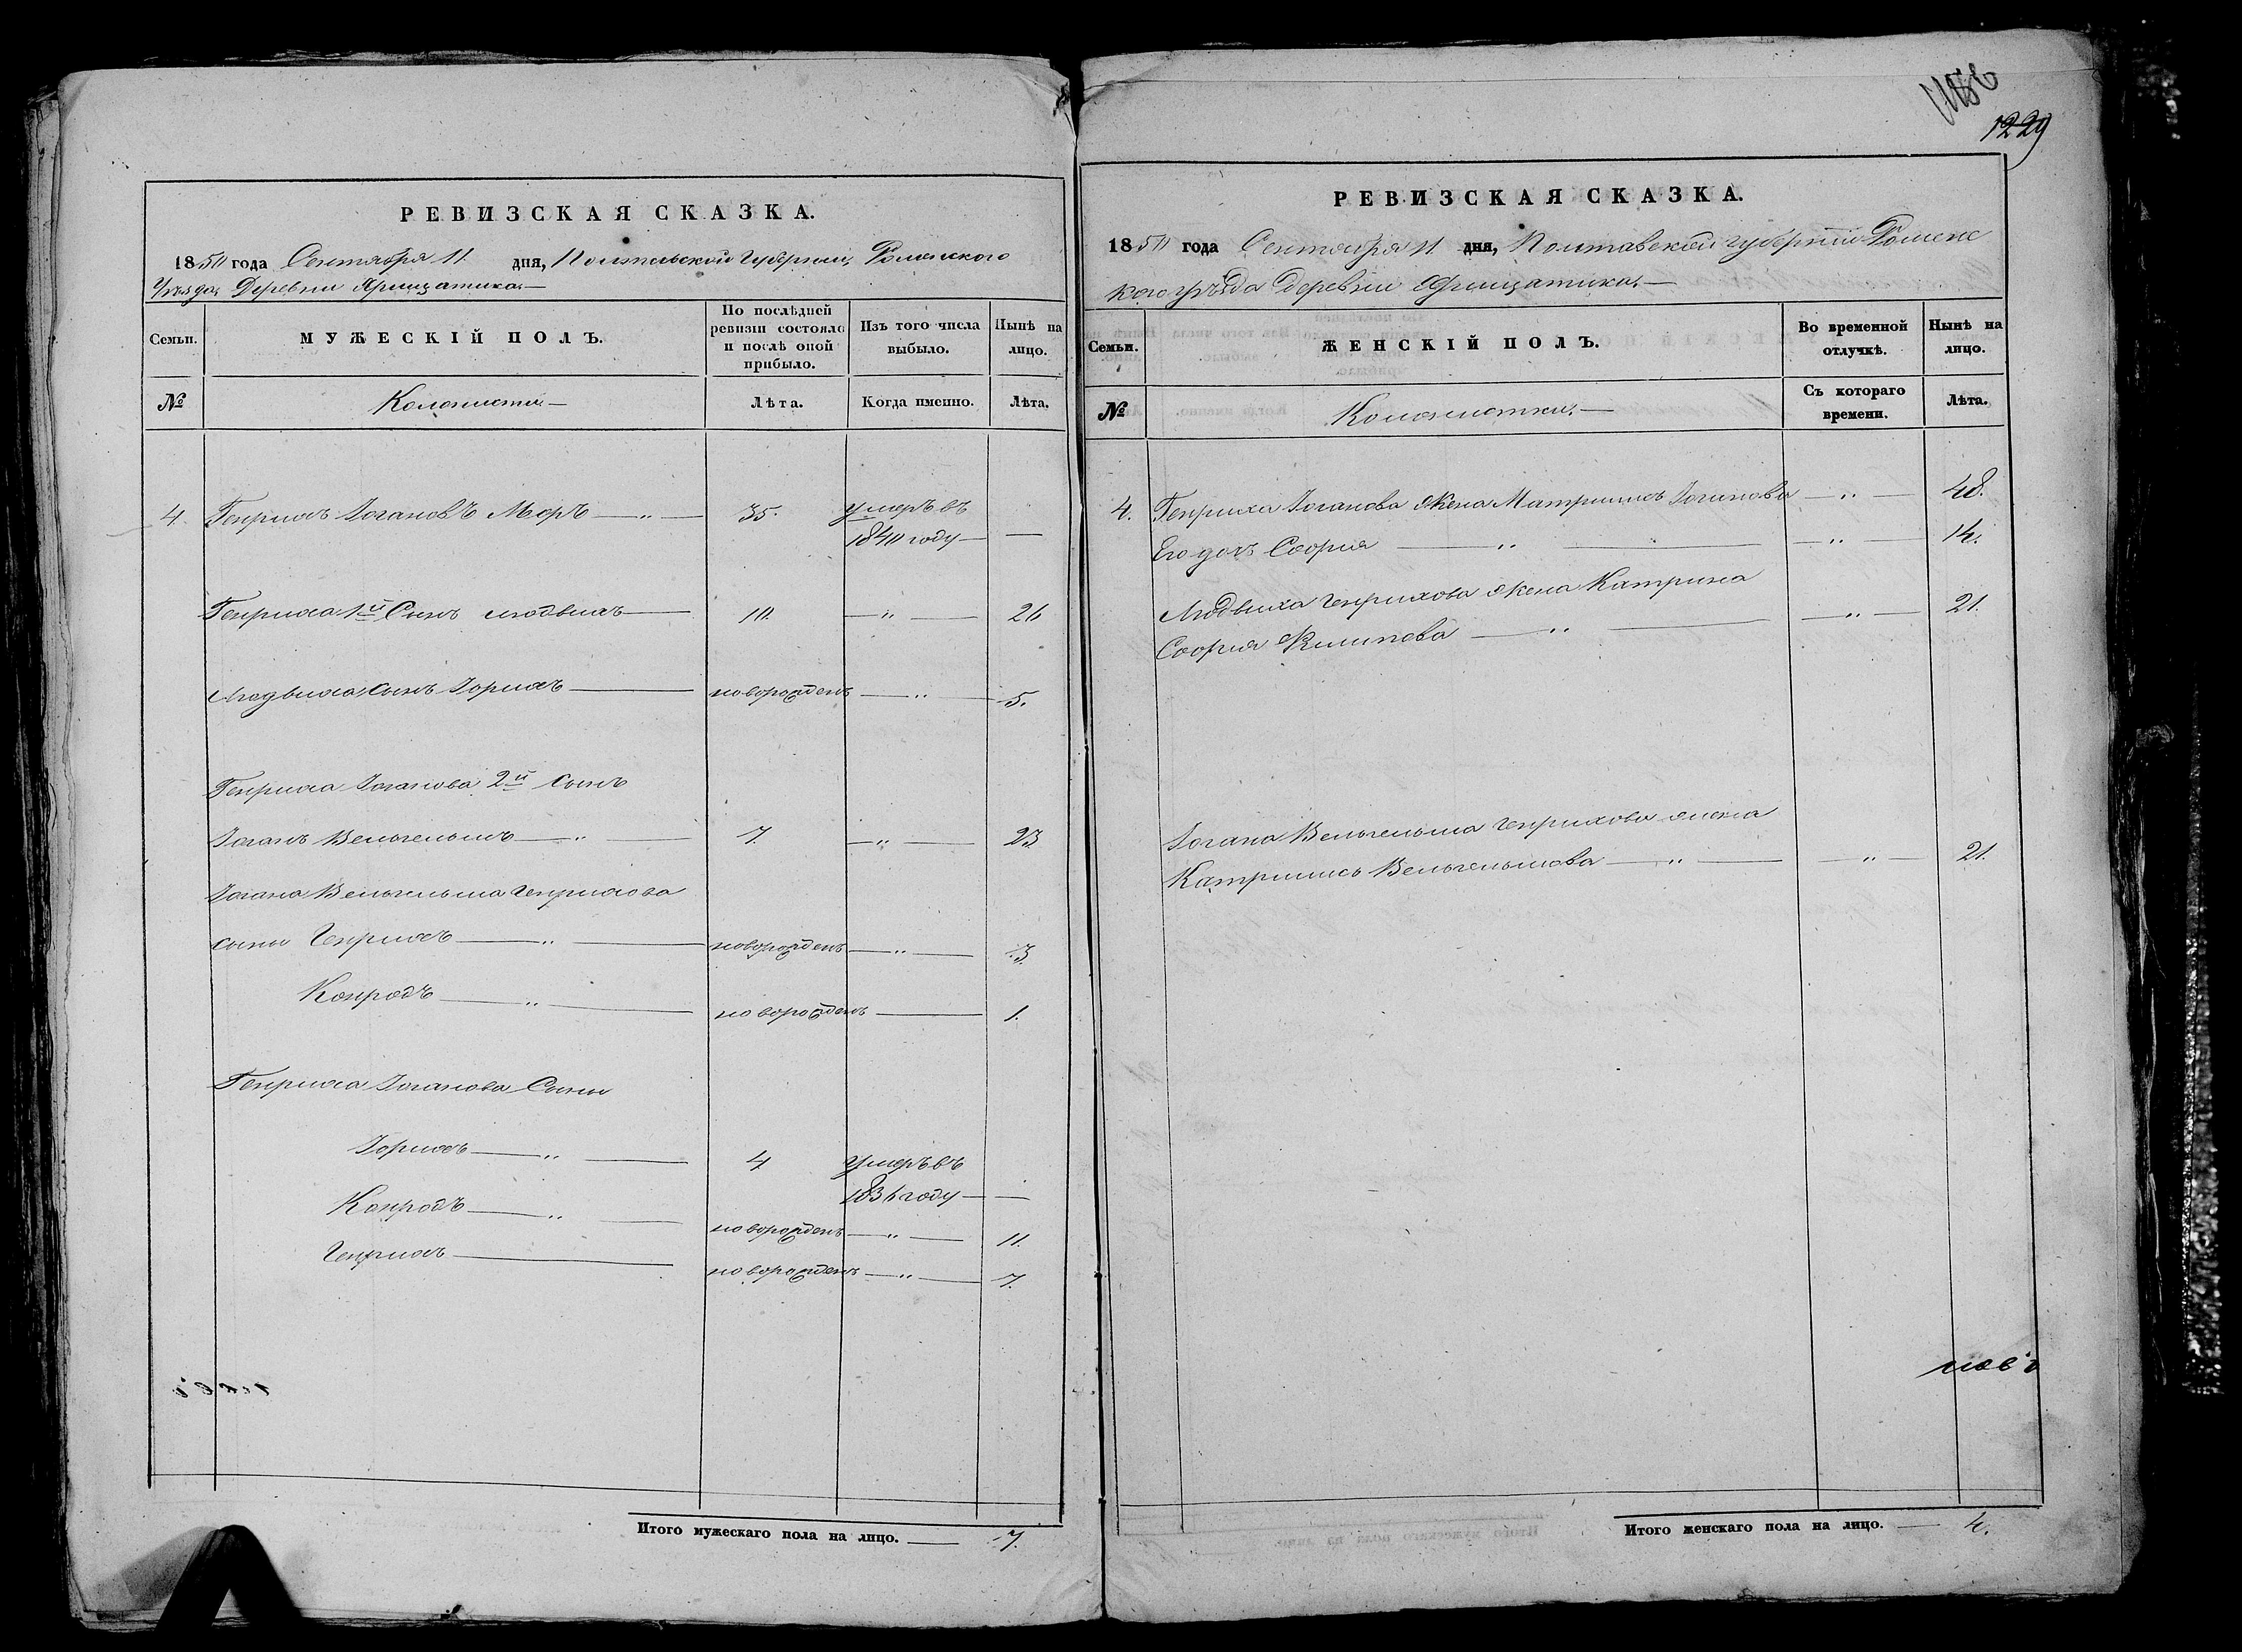 РЕВИЗСКАЯ СКАЗКА.
1850 года Сентября 11 дня, Полтавской Губернии, Роменского
Уезда, Деревни
Семьи.
МУЖЕСКІЙ ПОЛЪ.
По послѣдней ревизіи состояло и послѣ оной прибыло.
Изъ того числа выбыло.
Нынѣ на лицо.
№
Колонисты
Лѣта.
Когда именно.
Лѣта.
4. Генрихъ Iогановъ Моръ — 35. умеръ въ
1840 году —
Генриха 1й Сынъ Людвихъ — 10. — 26
Людвиха сынъ Iорихъ — новорожденъ — 5.
Генриха Iоганова 2й сынъ
Iоганъ Вельгельмъ — 7. — 23
Iогана Вельгельма Генрихова
сыны Генрихъ — новорожденъ — 3.
Конродъ — новорожденъ — 1.
Генриха Iоганова Сыны
Iорихъ — 4 умеръ въ
1836 году —
Конродъ — новорожденъ — 11.
Генрихъ — новорожденъ — 7.
Итого мужескаго пола на лицо. — 7.
1229
РЕВИЗСКАЯ СКАЗКА.
1850 года Сентября 11 дня, Полтавской губернии Роменс
кого уѣзда деревни
Семьи.
ЖЕНСКІЙ ПОЛЪ.
Во временной отлучкѣ.
Нынѣ на лицо.
№
Колонистки. —
Съ котораго времени.
Лѣта.
4. Генриха Iоганова жена Матрилисъ Iоганова — 48.
Его дочь София — 14.
Людвиха Генрихова жена Катрина
София Филипова — 21.
Iогана Вельгельма Генрихова жена
Катрилисъ Вельгельмова — 21.
Итого женскаго пола на лицо. — 4.